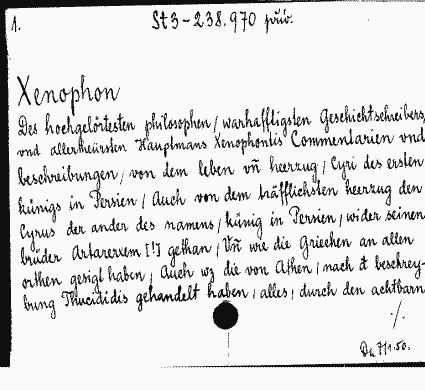 1.
St 3-238.970 priv.
Xenophon
Des hochgelörtesten philosophen / warhafftigsten Geschichtschreibers,
vnd allertheürsten Hauptmans Xenophontis Commentarien vnd
beschreibungen / von dem leben vn̄ heerzug / Cyri des ersten
künigs in Persien / Auch von dem träfflichsten heerzug den
Cyrus der ander des namens / künig in Persien / wider seinen
brüder Artarexem [!] gethan / Vn̄ wie die Griechen an allen
orthen gesigt haben / Auch wz die von Athen / nach d' beschrey-
bung Thucididis gehandelt haben / alles / durch den achtbarn
./.